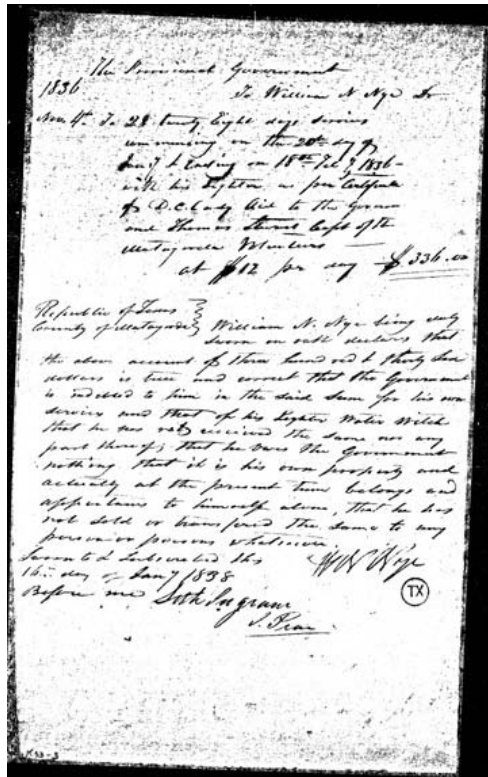 The Provisional Government
1836 To William N Nye Dr
Nov. 4th To 28 twenty Eight days services
commencing on the 20th day of
Jany & Ending on 18th Feby 1836 -
with his Lighter as per Certificate
of D. C. Cady Aid to the Governor
and Thomas Capt of the
Matagorda Volunteers —
at $12 per day — $336.00
Republic of Texas
County of Matagorda William N. Nye being duly
sworn on oath declares that
the above account of three hundred & thirty six
dollars is true and correct that the Government
is indebted to him in the said sum for his own
services and that of his Lighter Water Witch
that he has not received the same nor any
part thereof; that he owes the Government
nothing that it is his own property and
actually at the present time belongs and
appertains to himself alone, that he has
not sold or transfered the same to any
person or persons whatsoever.
Sworn to & Subscribed this W N Nye
16th day of Jany 1838
Before me Seth Ingram TX
J. Peac